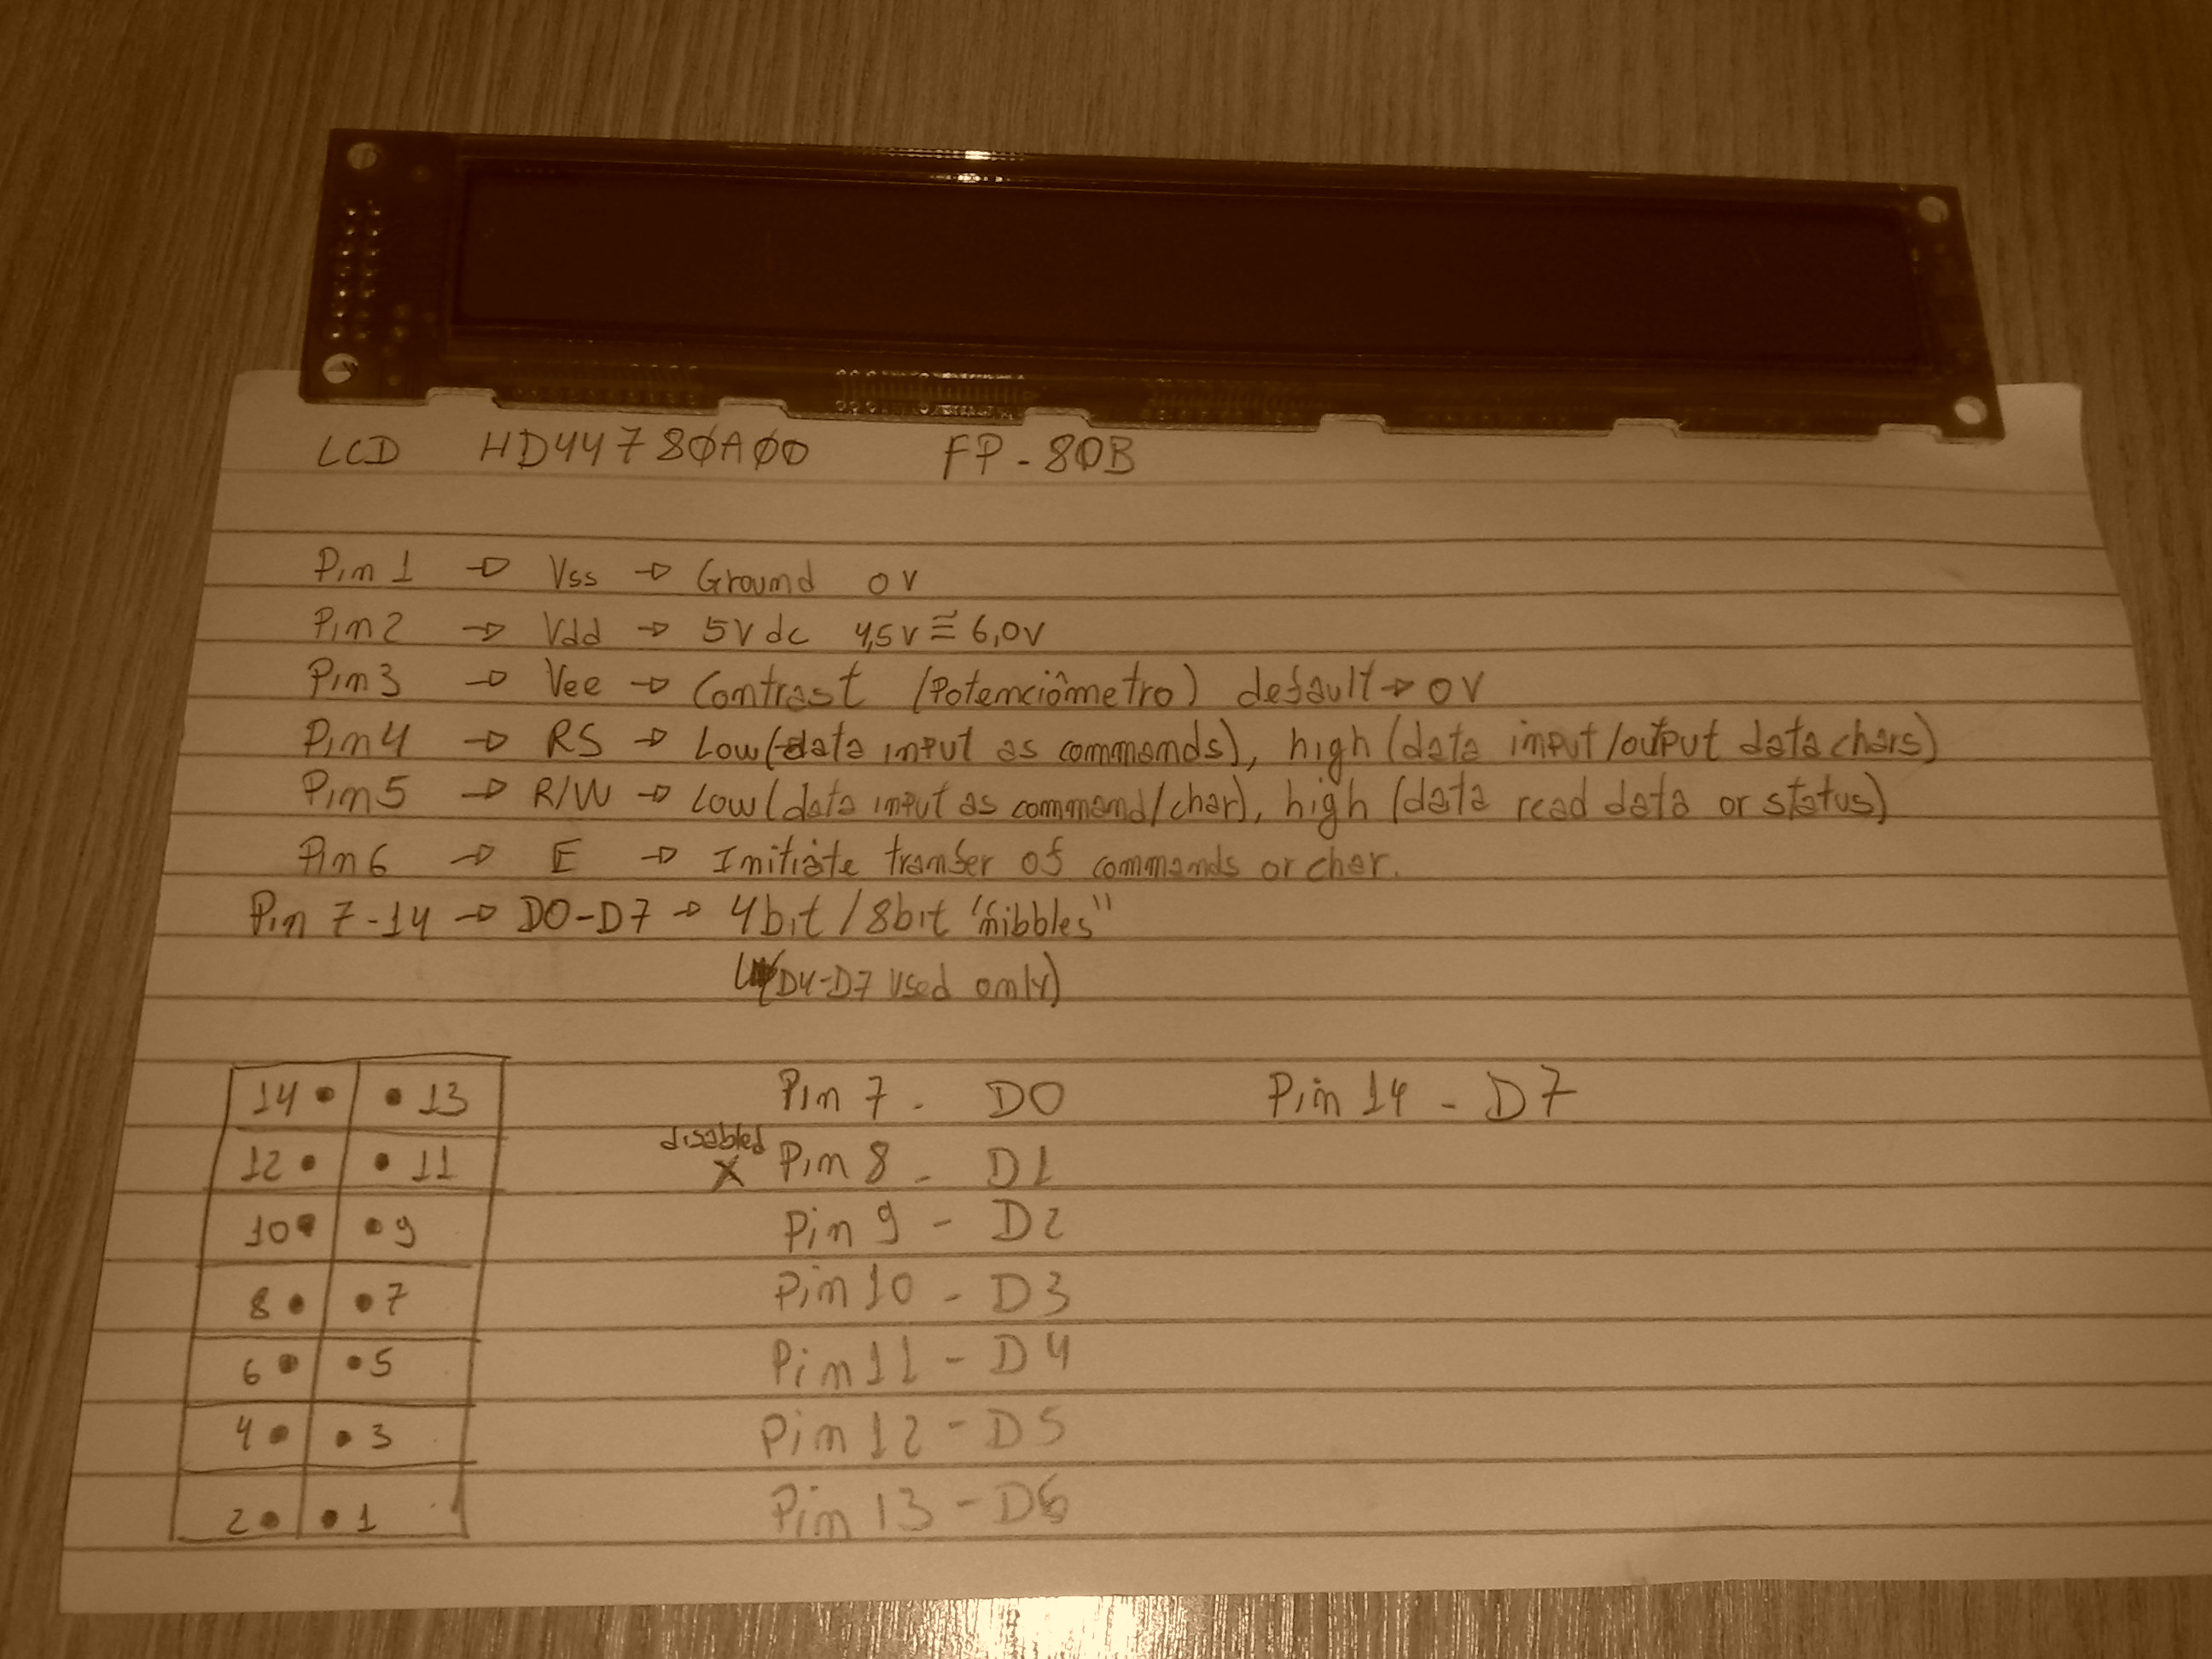 LCD HD44780A00 FP-80B
Pin 1 → Vss → Ground 0V
Pin 2 → Vdd → 5Vdc 4,5V ≅ 6,0V
Pin 3 → Vee → Contrast (Potenciômetro) default → 0V
Pin 4 → RS → Low (data input as commands), high (data input/output data chars)
Pin 5 → R/W → Low (data input as command/char), high (data read data or status)
Pin 6 → E → Initiate tranfer of commands or char.
Pin 7-14 → D0-D7 → 4bit / 8bit "nibbles"
(D4-D7 used only)
14 • • 13
12 • • 11
10 • • 9
8 • • 7
6 • • 5
4 • • 3
2 • • 1
Pin 7 - D0
disabled
X Pin 8 - D1
Pin 9 - D2
Pin 10 - D3
Pin 11 - D4
Pin 12 - D5
Pin 13 - D6
Pin 14 - D7